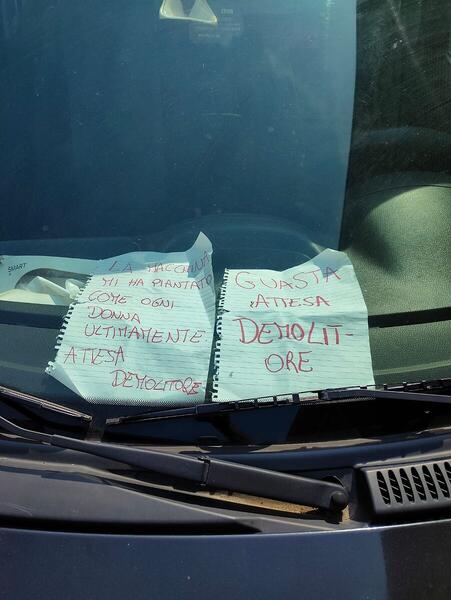 SMART
LA MACCHINA
MI HA PIANTATO
COME OGNI
DONNA
ULTIMAMENTE
ATTESA
DEMOLITORE
GUASTA
ATTESA
DEMOLIT-
ORE